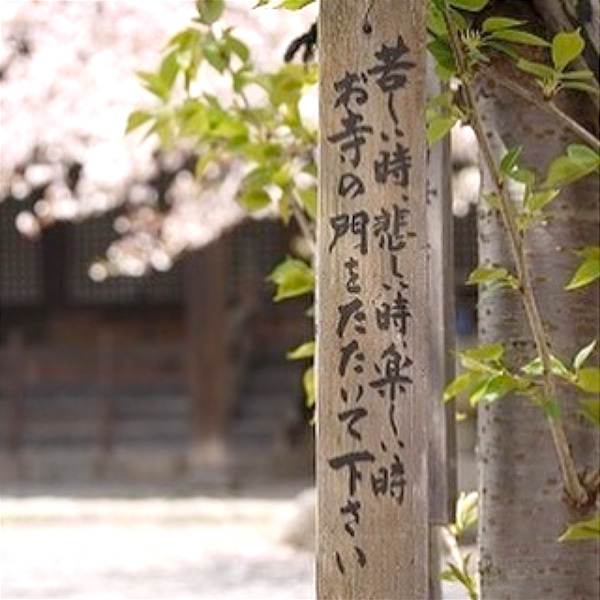 苦しい時、悲しい時、楽しい時
お寺の門をたたいて下さい